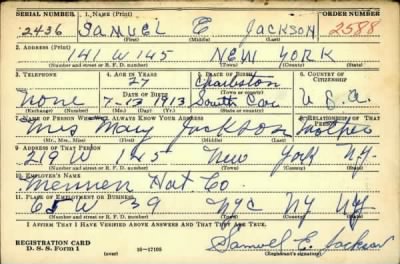 SERIAL NUMBER 1. NAME (Print) ORDER NUMBER
2436 SAMUEL E JACKSON 2588
(First) (Middle) (Last)
2. ADDRESS (Print)
141 W 145 NEW YORK
(Number and street or R. F. D. number) (Town) (County) (State)
3. TELEPHONE 4. AGE IN YEARS 5. PLACE OF BIRTH 6. COUNTRY OF CITIZENSHIP
27 Charleston
DATE OF BIRTH (Town or county)
none 7-13 1913 South Car U.S.A.
(Exchange) (Number) (Mo.) (Day) (Yr.) (State or country)
7. NAME OF PERSON WHO WILL ALWAYS KNOW YOUR ADDRESS 8. RELATIONSHIP OF THAT PERSON
Mrs Mary Jackson Mother
(Mr., Mrs., Miss) (First) (Middle) (Last)
9. ADDRESS OF THAT PERSON
219 W 145 New York N.Y.
(Number and street or R. F. D. number) (Town) (County) (State)
10. EMPLOYER'S NAME
Hat Co.
11. PLACE OF EMPLOYMENT OR BUSINESS
65 W 39 NYC NY NY
(Number and street or R. F. D. number) (Town) (County) (State)
I AFFIRM THAT I HAVE VERIFIED ABOVE ANSWERS AND THAT THEY ARE TRUE.
REGISTRATION CARD
D. S. S. Form 1 (over) 16-17105 Samuel E. Jackson
(Registrant's signature)